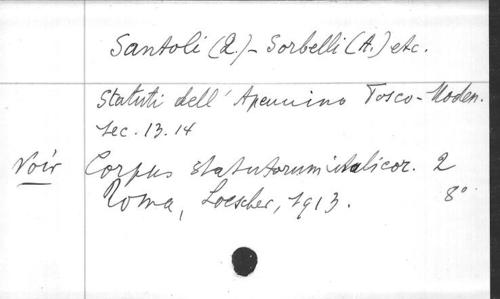 Santoli (Q.) - Sorbelli (A.) etc.
Statuti dell' Apennino Tosco-Moden.
sec. 13. 14
Voir Corpus statutorum italicor. 2
Roma, Loescher, 1913. 8°